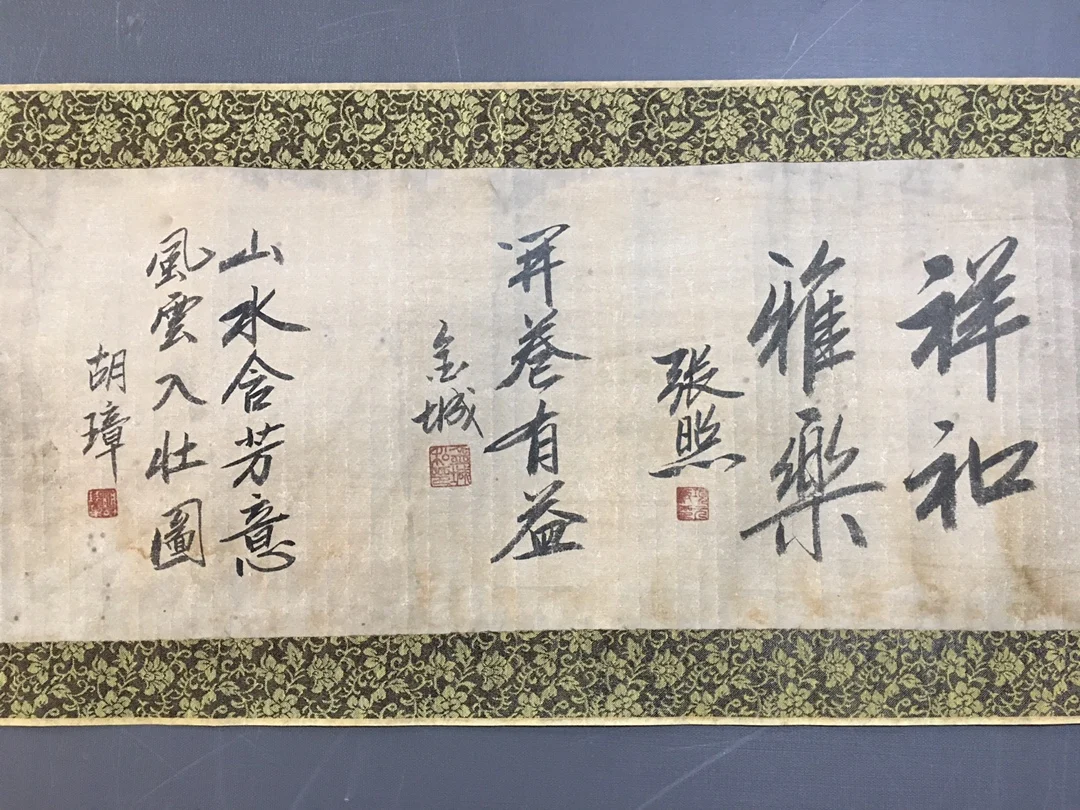 祥和
雅樂
張照
開卷有益
金城
山水含芳意
風雲入壯圖
胡璋